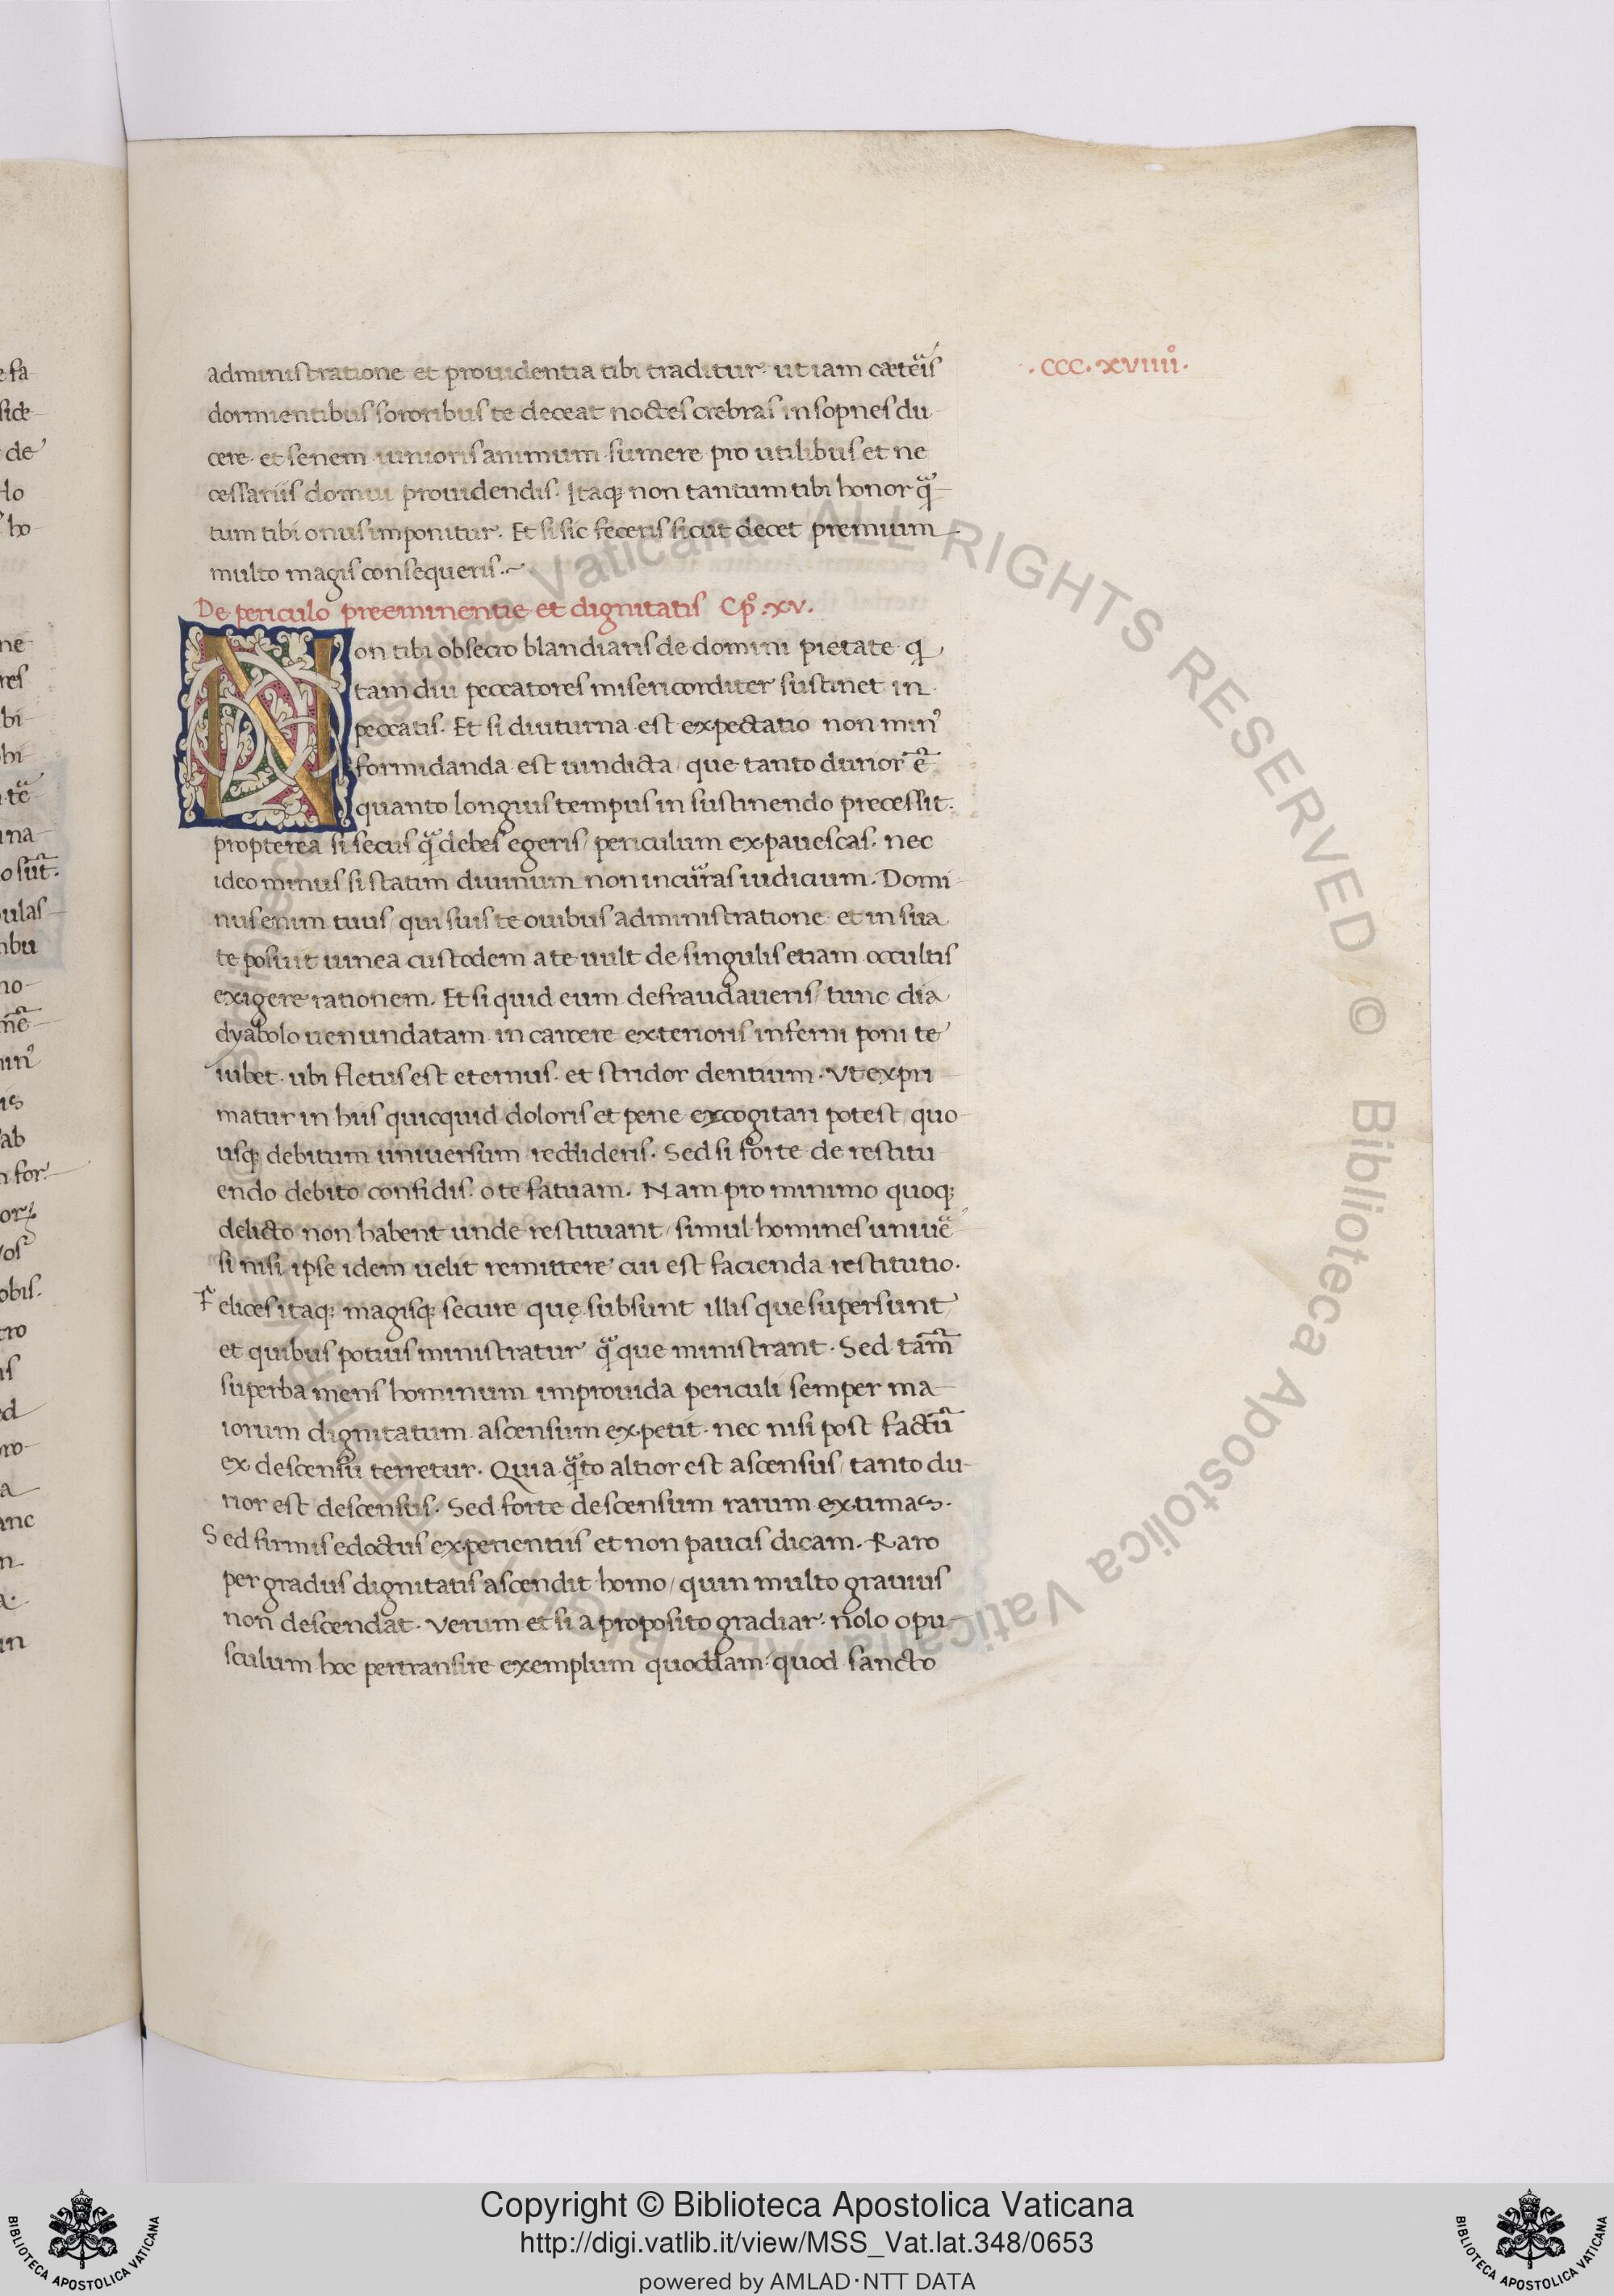 .CCC.XVIIII°.
administratione et prouidentia tibi traditur. ut iam cæter̃is
dormientibus sororibus te deceat noctes crebras insopnes du-
cere. et senem iunioris animum sumere pro utilibus et ne
cessariis domui prouidendis. Itaqꝫ non tantum tibi honor q̃-
tum tibi onus imponitur. Et si sic feceris sicut decet premium
multo magis consequeris.~
De periculo preeminentie et dignitatis Cp°.xv.
Non tibi obsecro blandiaris de domini pietate. ꝙ
tam diu peccatores misericorditer sustinet in
peccatis. Et si diuturna est expectatio non minꝰ
formidanda est uindicta, que tanto durior ẽ
quanto longius tempus in sustinendo precessit.
propterea si secus q̃ debes egeris, periculum expauescas. nec
ideo minus si statim diuinum non incũras iudicium. Domi-
nus enim tuus, qui suis te ouibus administratione et in sua
te posuit uinea custodem a te uult de singulis etiam occultis
exigere rationem. Et si quid eum defraudaueris, tunc dia
dyabolo uenundatam in carcere exterioris inferni poni te
iubet. ubi fletus est eternus. et stridor dentium. Vt expri-
matur in hiis quicquid doloris et pene excogitari potest, quo-
usqꝫ debitum uniuersum reddideris. Sed si forte de restitu-
endo debito confidis. o te fatuam. Nam pro minimo quoqꝫ
delicto non habent unde restituant, simul homines uniuẽ
si nisi ipse idem uelit remittere cui est facienda restitutio.
Felices itaqꝫ magisqꝫ secure quę subsunt illis que supersunt
et quibus potius ministratur q̃ que ministrant. Sed tam̃
superba mens hominum improuida periculi semper ma-
iorum dignitatum ascensum expetit. nec nisi post factũ
ex descensu terretur. Quia q̃to altior est ascensus, tanto du-
rior est descensus. Sed forte descensum rarum extimas.
Sed firmis edoctus experientiis et non paucis dicam. Raro
per gradus dignitatis ascendit homo, quin multo grauius
non descendat. Verum et si a proposito gradiar. nolo opu-
sculum hoc pertransire exemplum quoddam. quod sancto
Copyright © Biblioteca Apostolica Vaticana
http://digi.vatlib.it/view/MSS_Vat.lat.348/0653
powered by AMLAD·NTT DATA
BIBLIOTECA APOSTOLICA VATICANA
BIBLIOTECA APOSTOLICA VATICANA